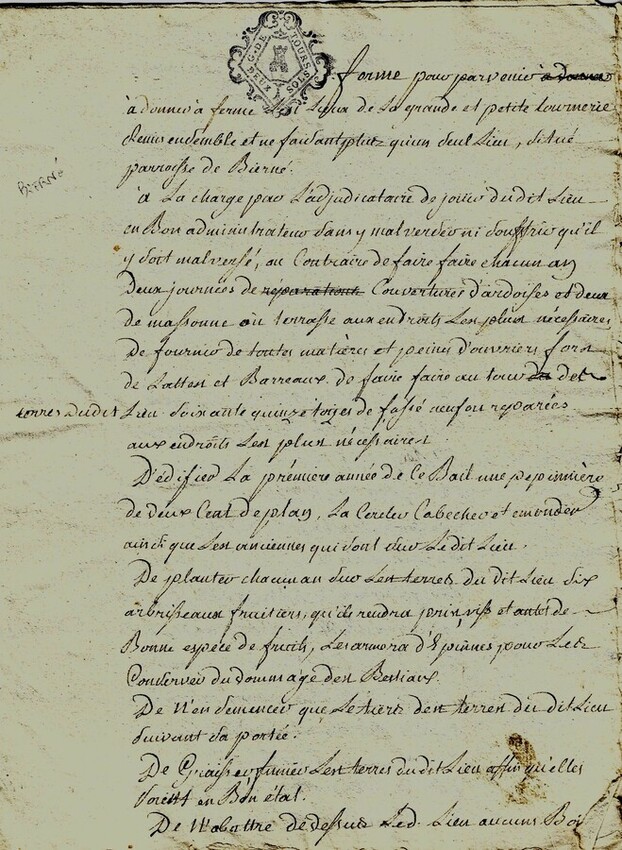 G. DE TOURS
DEUX SOLS
forme pour parvenir a donner
à donner à ferme Lieux de La grande et petite tournerie
Reunis ensemble et ne faisant plus qu'un seul Lieu, situé
parroisse de Bierné.
BIERNÉ
à La charge par L'adjudicataire de jouir du dit Lieu
en Bon administrateur sans y malverser ni souffrir qu'il
y soit malversé, au Contraire de faire faire chacun an
Deux journées de réparations Couvertures d'ardoises et deux
de massonne ou terrasse aux endroits Les plus nécessaires
De fournir de toutes matières et peines d'ouvriers fors
de Lattes et Barreaux. de faire faire au tour du des
terres du dit Lieu soixante quinze toizes de fossé neuf ou reparées
aux endroits Les plus nécessaires.
D'édifier La première année de Ce Bail une pepinnière
de deux Cent de plan, La Cercler Cabecher et emonder
ainsi que Les anciennes qui sont sur Le dit Lieu.
De planter chacun an sur Les terres du dit Lieu six
arbrisseaux fruitiers, qu'il rendra pris, vifs et antés de
Bonne espéce de fruits, Les armera d'Epinnes pour Les
Conserver du dommage des Bestiaux.
De N'ensemencer que Le tiers des terres du dit Lieu
suivant sa portée.
De Graisser fumer Les terres du dit Lieu affin qu'elles
soient en Bon état.
De N'abattre de dessus Led. Lieu aucuns Boi